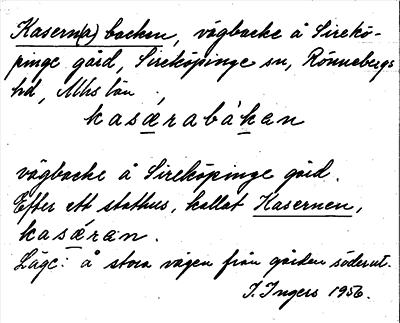 Kasern(a) backen, vägbacke å Sirekö-
pinge gård, Sireköpinge sn, Rönnebergs
hd, Mhs län,
kasǽrabákan
vägbacke å Sireköpinge gård.
Efter ett stathus, kallat Kasernen,
kasǽran.
Läge: å stora vägen från gården söderut.
I. Ingers 1956.